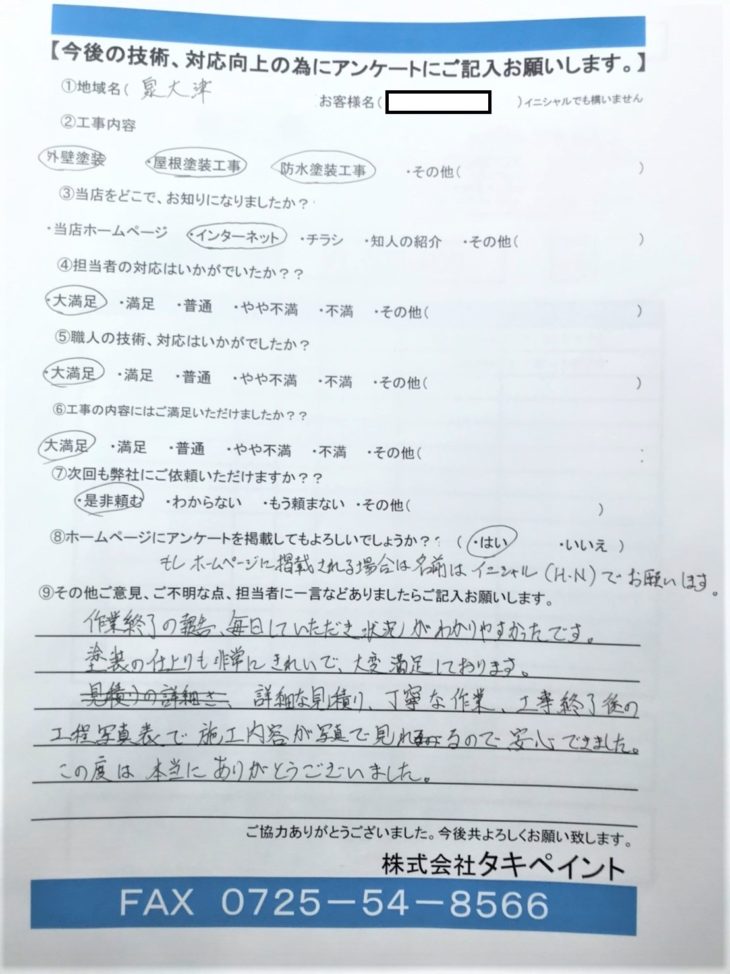 【今後の技術、対応向上の為にアンケートにご記入お願いします。】
①地域名( 泉大津
お客様名( )イニシャルでも構いません
②工事内容
外壁塗装 ・屋根塗装工事 防水塗装工事 ・その他( )
③当店をどこで、お知りになりましたか?
・当店ホームページ ・インターネット ・チラシ ・知人の紹介 ・その他( )
④担当者の対応はいかがでいたか??
・大満足 ・満足 ・普通 ・やや不満 ・不満 ・その他( )
⑤職人の技術、対応はいかがでしたか?
・大満足 ・満足 ・普通 ・やや不満 ・不満 ・その他( )
⑥工事の内容にはご満足いただけましたか??
大満足 ・満足 ・普通 ・やや不満 ・不満 ・その他(
⑦次回も弊社にご依頼いただけますか??
・是非頼む ・わからない ・もう頼まない ・その他( )
⑧ホームページにアンケートを掲載してもよろしいでしょうか?? ( ・はい ・いいえ )
もしホームページに掲載される場合は名前はイニシャル(H・N)でお願いします。
⑨その他ご意見、ご不明な点、担当者に一言などありましたらご記入お願いします。
作業終了の報告、毎日していただき状況がわかりやすかったです。
塗装の仕上りも非常にきれいで、大変満足しております。
見積りの詳細さ、詳細な見積り、丁寧な作業、工事終了後の
工程写真表で施工内容が写真で見れるので安心できました。
この度は本当にありがとうございました。
ご協力ありがとうございました。今後共よろしくお願い致します。
株式会社タキペイント
FAX 0725-54-8566